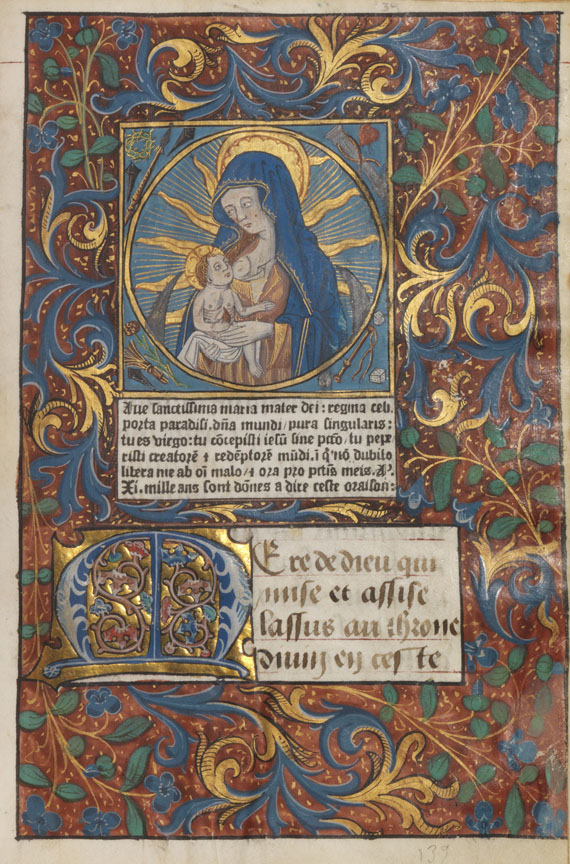 Aue sanctissima maria mater dei: regina celi.
porta paradisi. dña mundi/ pura singularis:
tu es virgo: tu cõcepisti iesũ sine pctõ/ tu pepe
risti creatorẽ ⁊ redẽptorẽ mũdi. ĩ q̃ nõ dubito
libera me ab oĩ malo/ ⁊ ora pro pctis meis. Aʳ.
Xi. mille ans sont dõnes a dire ceste oraison:
Ere de dieu qui
mise et assise
lassus au throne
diuin en ceste
139